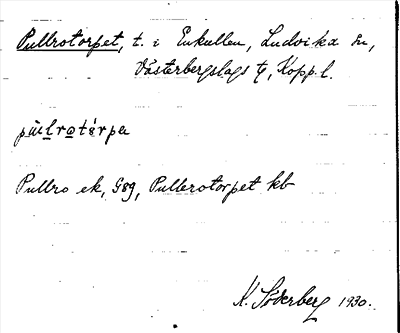 Pullrotorpet, t. i Enkullen, Ludvika sn,
Västerbergslags tg, Kopp. l.
Pullro ek, G89, Pullerotorpet kb
K. Söderberg 1930.